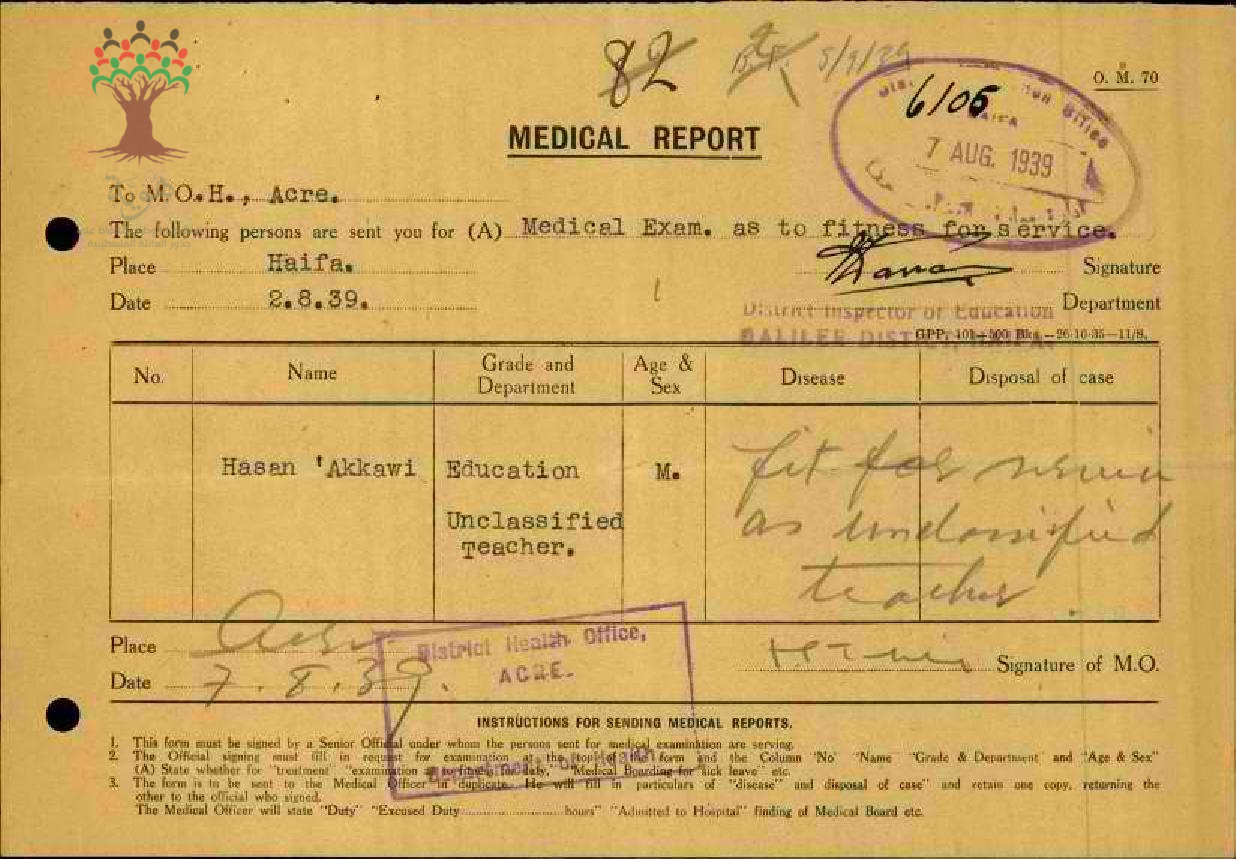 82 5/9/39
O. M. 70
6105
HAIFA
7 AUG. 1939
MEDICAL REPORT
To M.O.H., Acre.
The following persons are sent you for (A) Medical Exam. as to fitness for service.
Place Haifa. Signature
Date 2.8.39. Department
District Inspector of Education
GALILEE DISTRICT, HAIFA.
GPP. 101—500 Bks.—26-10-35—11/8.
No. Name Grade and Department Age & Sex Disease Disposal of case
Hasan 'Akkawi Education M.
Unclassified
Teacher.
fit for service
as unclassified
teacher.
Place Acre
Date 7.8.39.
Signature of M.O.
District Health Office,
ACRE.
Department of Health
INSTRUCTIONS FOR SENDING MEDICAL REPORTS.
1. This form must be signed by a Senior Official under whom the persons sent for medical examination are serving.
2. The Official signing must fill in request for examination at the top of the form and the Column "No" "Name" "Grade & Department" and "Age & Sex"
(A) State whether for "treatment" "examination as to fitness for duty," "Medical Boarding for sick leave" etc.
3. The form is to be sent to the Medical Officer in duplicate. He will fill in particulars of "disease" and disposal of case" and retain one copy, returning the
other to the official who signed.
The Medical Officer will state "Duty" "Excused Duty..............hours" "Admitted to Hospital" finding of Medical Board etc.